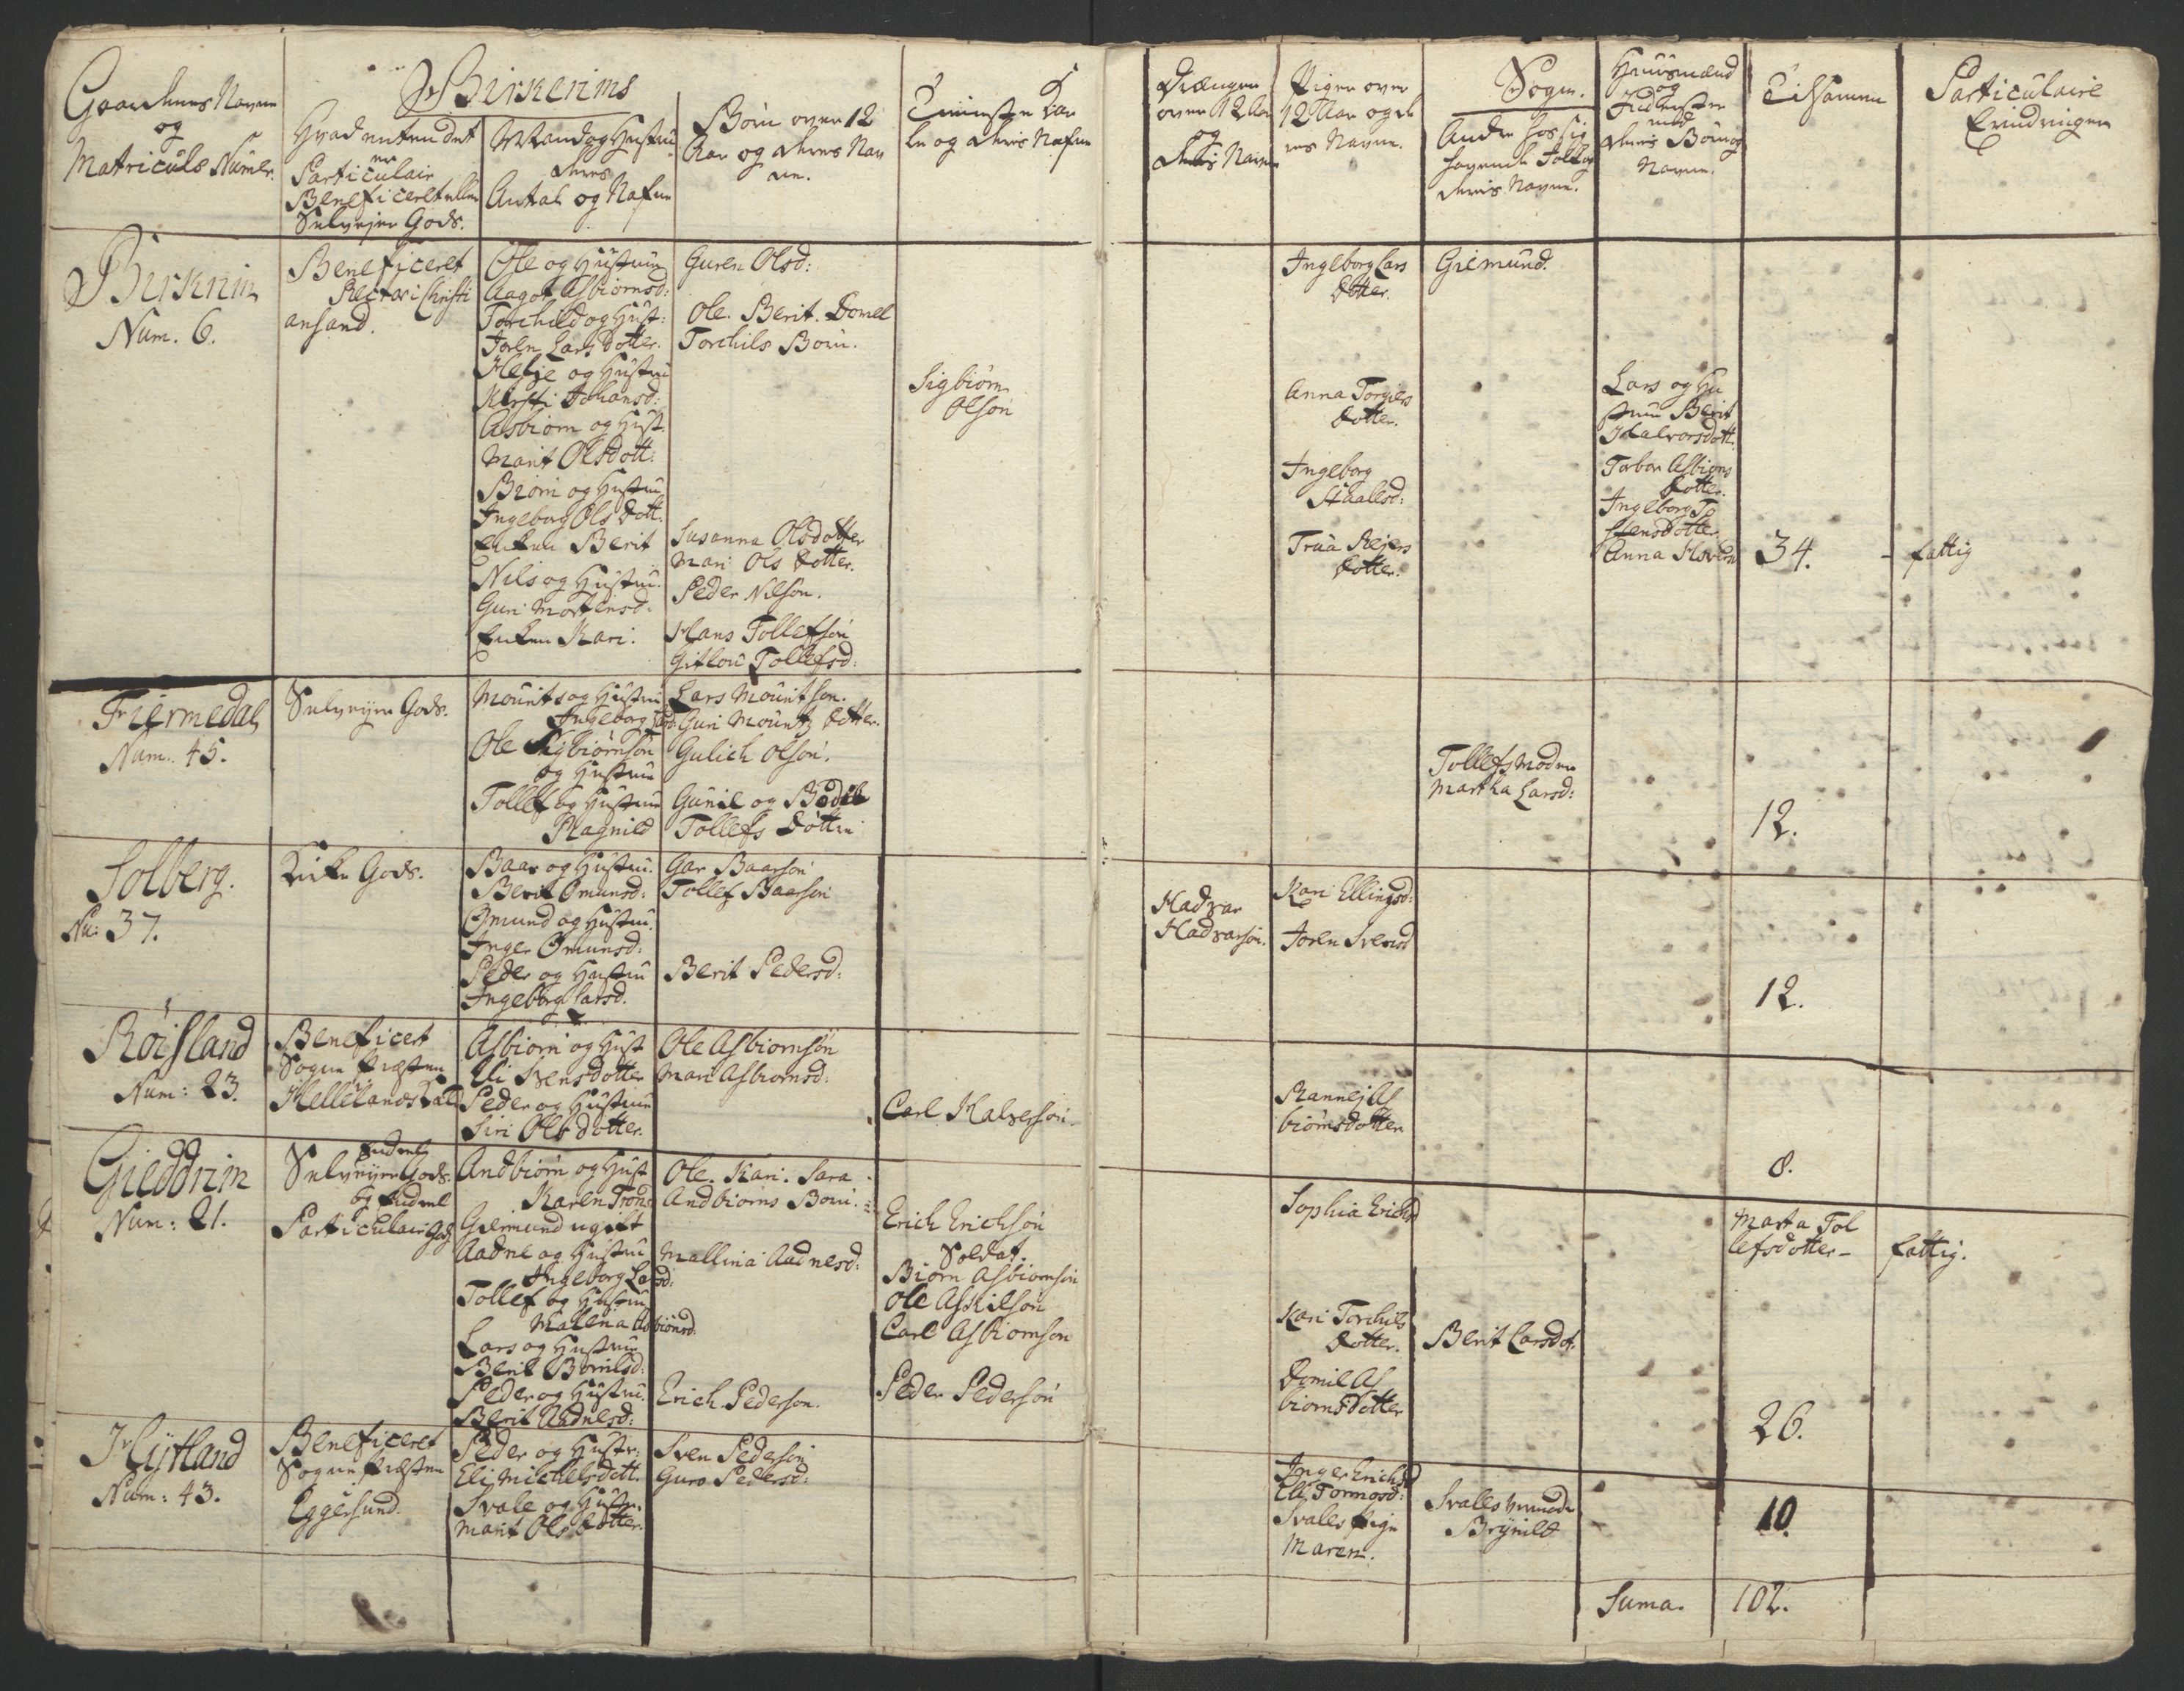 Birkerims
Sogn.
Gaardenes Navne
og
Matriculs Numer.
Hvad enten det
er
Particulair
Beneficeret eller
Selvejer Gods.
Mand og Hustru
deres
Antal og Nafne
Børn over 12
Aar og deres Nav
ne.
Tienste Kar
le og deres Nafne
Drænger
over 12 Aar
og
deris Navne
Piger over
12 Aar og de
res Navne.
Andre hos sig
havende Folk og
deris Navne.
Huusmænd
og
Inderster
med
deris Børn og
Navne.
Tilsamen
Particulaire
Erindringer
Birkrim
Num. 6.
Beneficeret
Rectori Christi
ansand.
Ole og Hustrue
Aagot Asbiørnsd:
Torchild og Hust:
Joren Lars Dotter.
Helje og Hustru
Kirsti Johansd:
Asbiørn og Hust
Marit Olsdott:
Biørn og Hustru
Ingeborg Ols Dott.
Enken Berit
Nils og Hustru.
Guri Mortensd.
Enken Kari.
Guren Olsd:
Ole. Berit. Domel
Torchils Børn.
Susanna Olsdotter
Mari Ols Dotter.
Peder Nilson.
Hans Tollefsøn
Gitlou Tollefsd:
Sigbiørn
Olsøn
Ingeborg Lars
Dotter.
Anna Torgiers
Dotter.
Ingeborg
Staalesd:
Trua Rejers
Dotter.
Giemund.
Lars og Hu
strue Berit
Halvorsdott.
Torbor Asbiørns
Dotter.
Ingeborg To
stensdotter
Anna
34.
fattig
Tiermedal
Num. 45.
Selvejer Gods.
Mouritz og Hustru
Ingeborg
Ole Sigbiørnsøn
og Hustrue
Tollef og Hustrue
Ragnild
Lars Mouritsøn.
Guri Mouritz Dotter.
Gulich Olsøn.
Gunil og Bodil
Tollefs Døttre
Tollefs Moder
Martha Larsd:
12.
Solberg.
Nu: 37.
Kirke Gods.
Baar og Hustru.
Berit Omunsd:
Omund og Hustru.
Inger Omunsd:
Peder og Hustru
Ingeborg Larsd.
Gar Baarsøn
Tollef Baarsøn
Berit Pedersd:
Hadvar
Hadvarsøn.
Kari Ellingsd:
Joren Svensd
12.
Røisland
Num: 23.
Beneficert
Sogne Præsten
Hellelands Kald
Asbiørn og Hust
Eli Svensdotter
Peder og Hustrue
Siri Ols dotter.
Ole Asbiornsøn
Mari Asbiornsd:
Carl Halversøn.
Rannej As
biørnsdotter
8.
Gieddrim
Num: 21.
Endeel
Selvejer Gods.
og Endeel
Particulair Gods
Andbiørn og Hust
Karen Trons
Giermund ugift
Aadne og Hustru
Ingeborg Larsd:
Tollef og Hustru
Malena Asbiønsd.
Lars og Hustrue
Berit Bornilsd:
Peder og Hustru.
Berit Aadnesd:
Ole. Kari. Sara
Andbiørns Børn.
Mallina Aadnesd:
Erich Pedersøn.
Erich Erichsøn
Soldat.
Biørn Asbiornsøn
Ole Askilsøn
Carl Asbiornsøn
Peder Pedersøn
Sophia Erichsd
Kari Torchils
Dotter.
Domil As
biornsdotter
Berit Larsdot.
Marta Tol
lefsdotter -
fattig.
26.
Hytland
Num: 43.
Beneficeret
Sogne Præsten
Eggersund.
Peder og Hustr:
Eli Michelsdott.
Svale og Hustr.
Marit Ols Dotter.
Sven Pedersøn
Guro Pedersd:
Inger Erichsd
Eli Tormosd:
Svales pige
Maren.
Svales
Brynild
10.
Suma. 102.